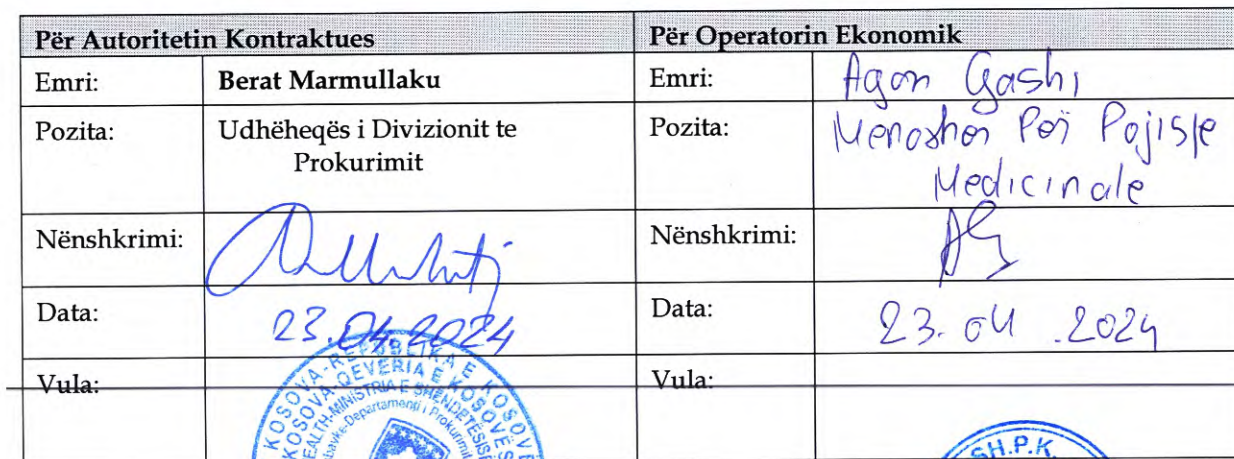 Për Autoritetin Kontraktues
Për Operatorin Ekonomik
Emri: Berat Marmullaku
Emri: Agon Gashi
Pozita: Udhëheqës i Divizionit te
Prokurimit
Pozita: Menaxher Për Pajisje
Medicinale
Nënshkrimi:
Nënshkrimi:
Data: 23.04.2024
Data: 23.04.2024
Vula:
Vula:
REPUBLIKA E KOSOVËS
KOSOVA-QEVERIA E KOSOVËS
HEALTH-MINISTRIA E SHËNDETËSISË
Departamenti i Prokurimit
SH.P.K.